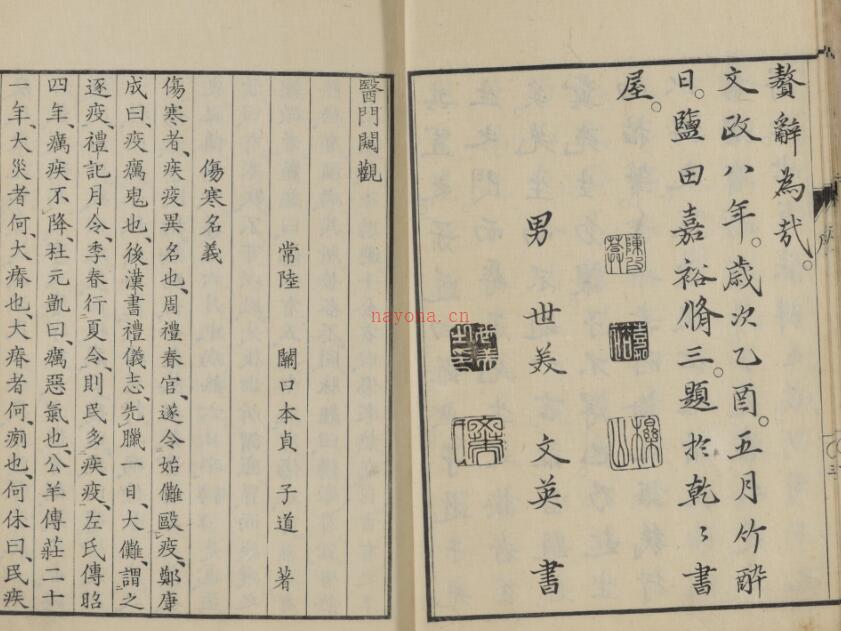 贅辭為哉。
文政八年。歲次乙酉。五月竹醉
日。鹽田嘉裕脩三。題於乾〻書
屋。
男 世美 文英 書
醫門闢觀
常陸 關口本貞 子道 著
傷寒名義
傷寒者、疾疫異名也、周禮春官、遂令始儺毆疫、鄭康
成曰、疫癘鬼也、後漢書禮儀志、先臘一日、大儺、謂之
逐疫、禮記月令、季春行夏令、則民多疾疫、左氏傳昭
四年、癘疾不降、杜元凱曰、癘惡氣也、公羊傳莊二十
一年、大災者何、大瘠也、大瘠者何、㾐也、何休曰、民疾
序
三
nayona.cn